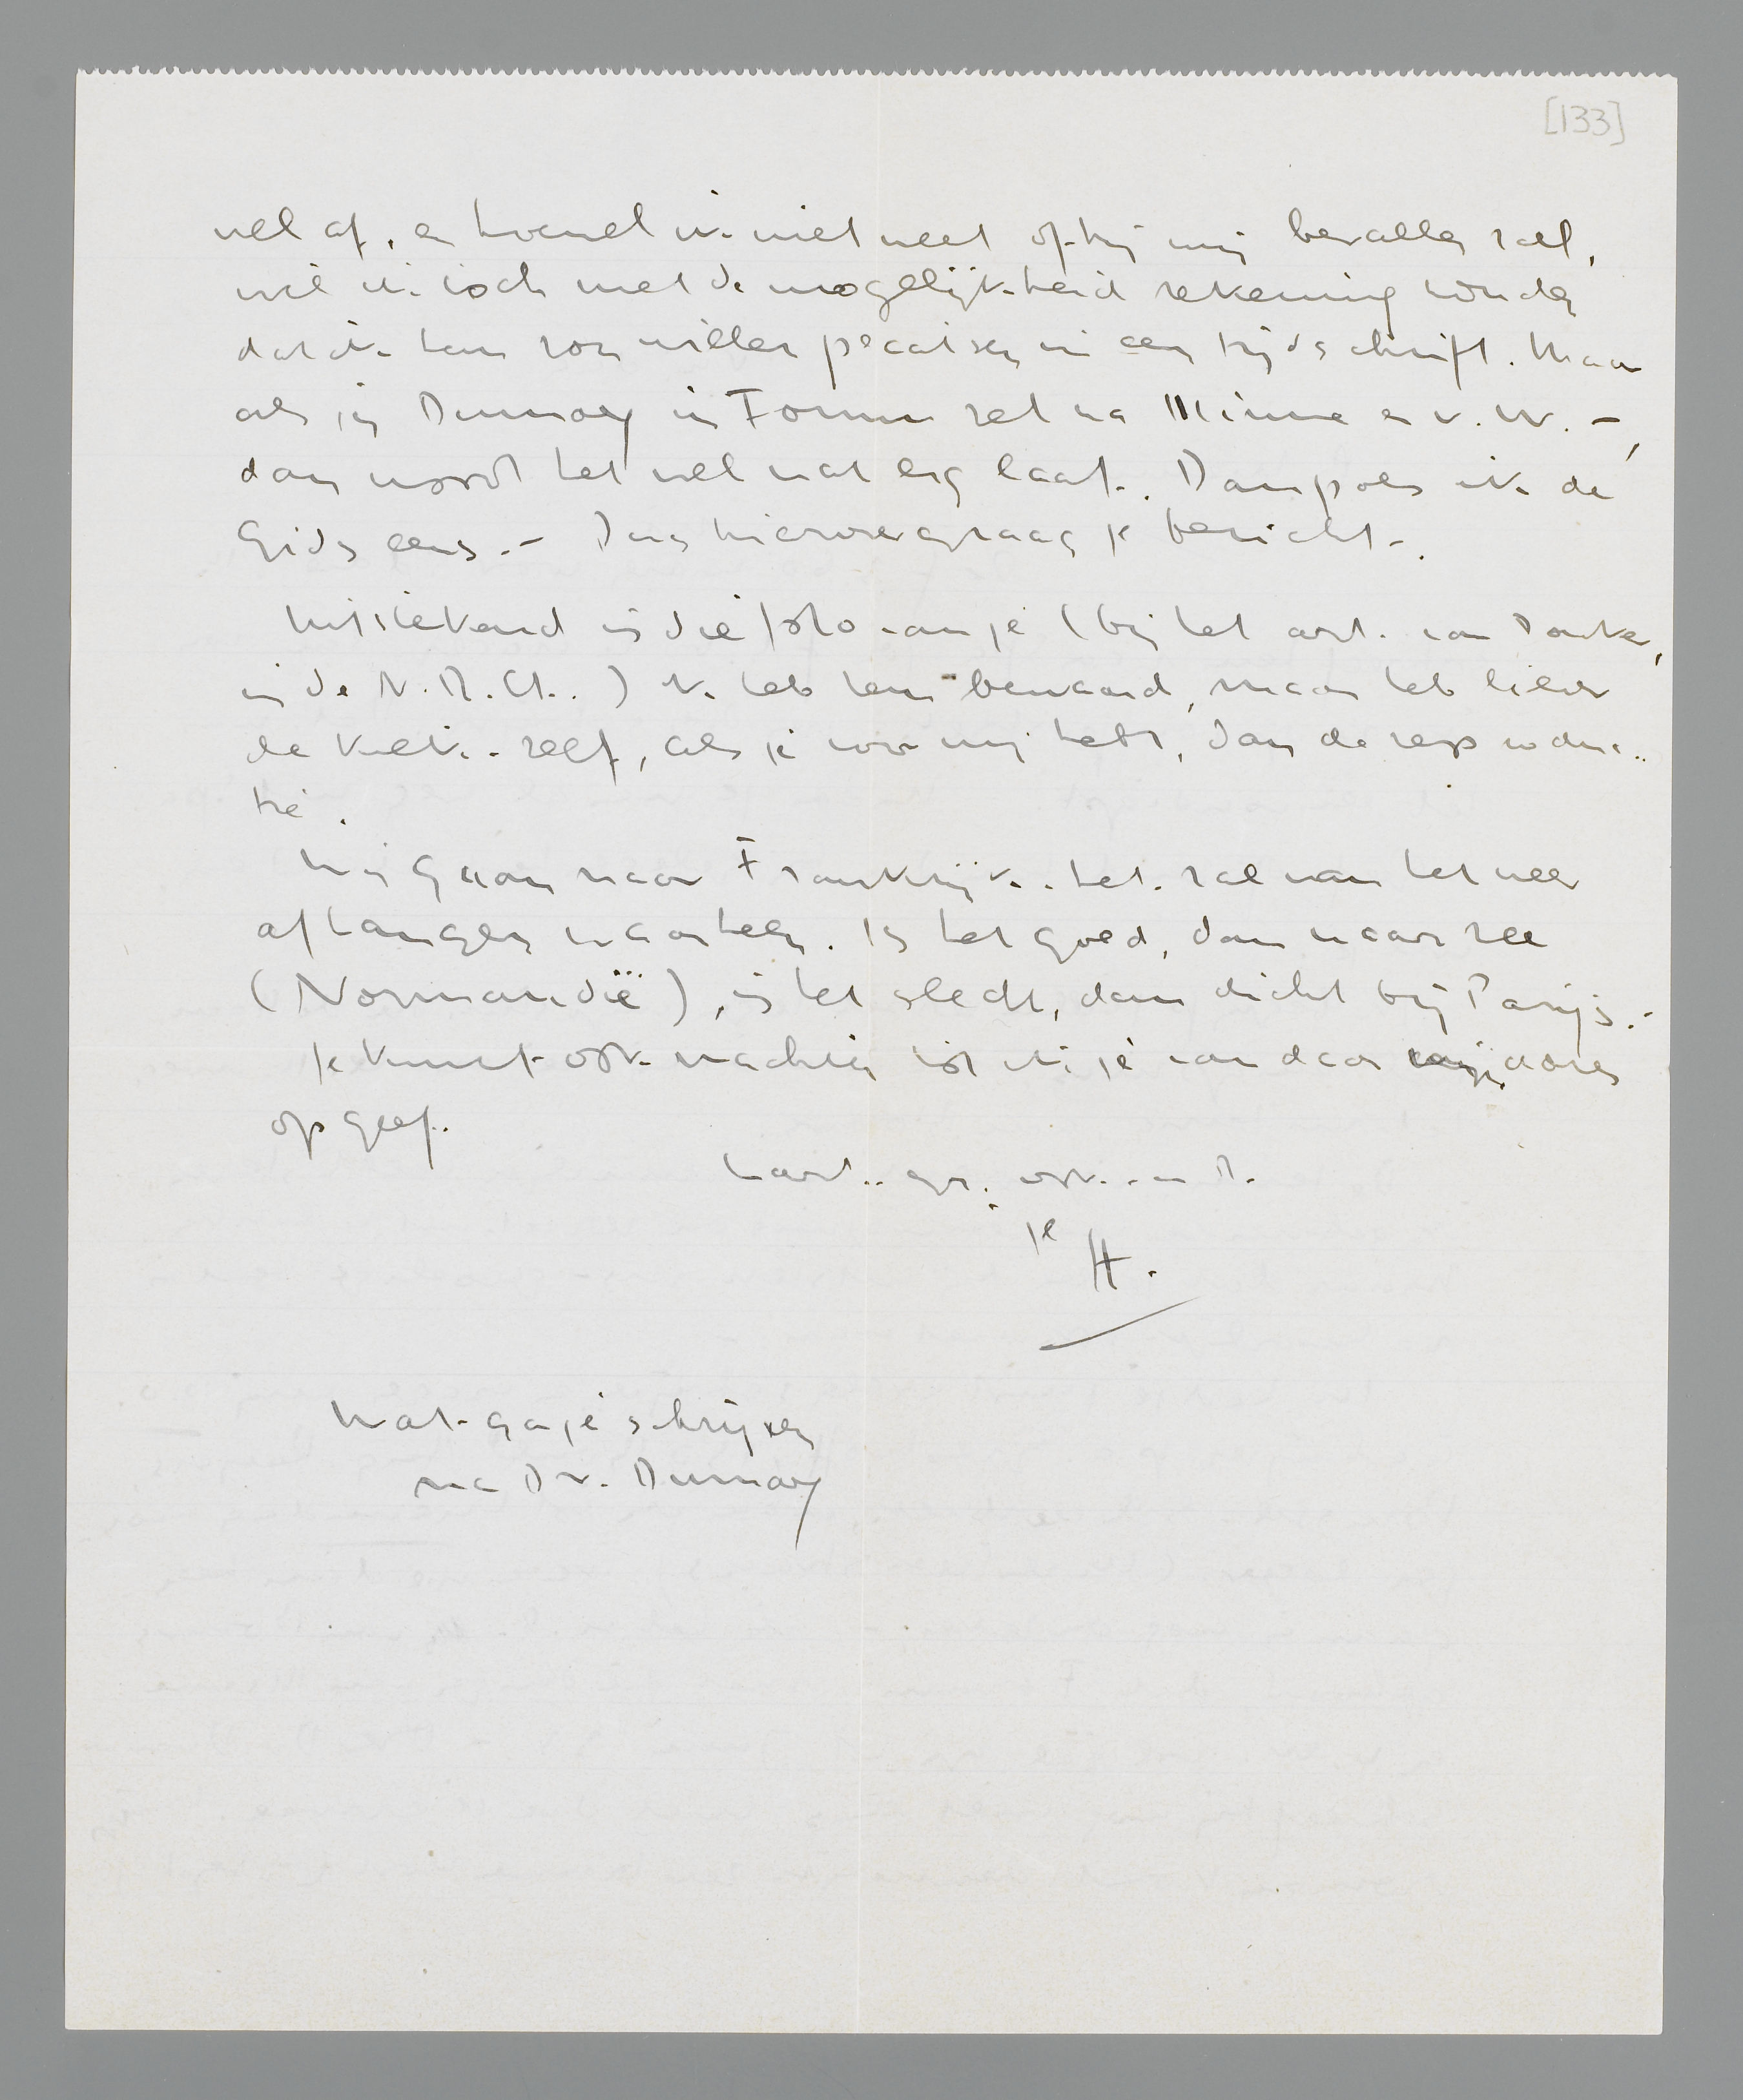 [133]
wel af, en hoewel ik niet weet of hij mij bevallen zal,
wil ik toch met de mogelijkheid rekening houden
dat ik hem zou willen plaatsen in een tijdschrift. Maar
als jij Dumay in Forum zet na Minne en v. W. –,
dan wordt het wel wat erg laat. Dan pols ik de
Gids eens. – Dus hierover graag je bericht.
Uitstekend is die foto van je (bij het art. van Donker,
in de N.R.Ct..) Ik heb hem bewaard, maar heb liever
de kiek zelf, als je voor mij hebt, dan de reproduc-
tie.
Wij gaan naar Frankrijk. het zal van het weer
afhangen waarheen. Is het goed, dan naar zee
(Normandië), is het slecht, dan dicht bij Parijs. –
Je kunt ook wachten tot ik je van daar mijn adres
opgeef.
Hart. gr. ook. a. R.
je
H.
Wat ga je schrijven
na Dr. Dumay